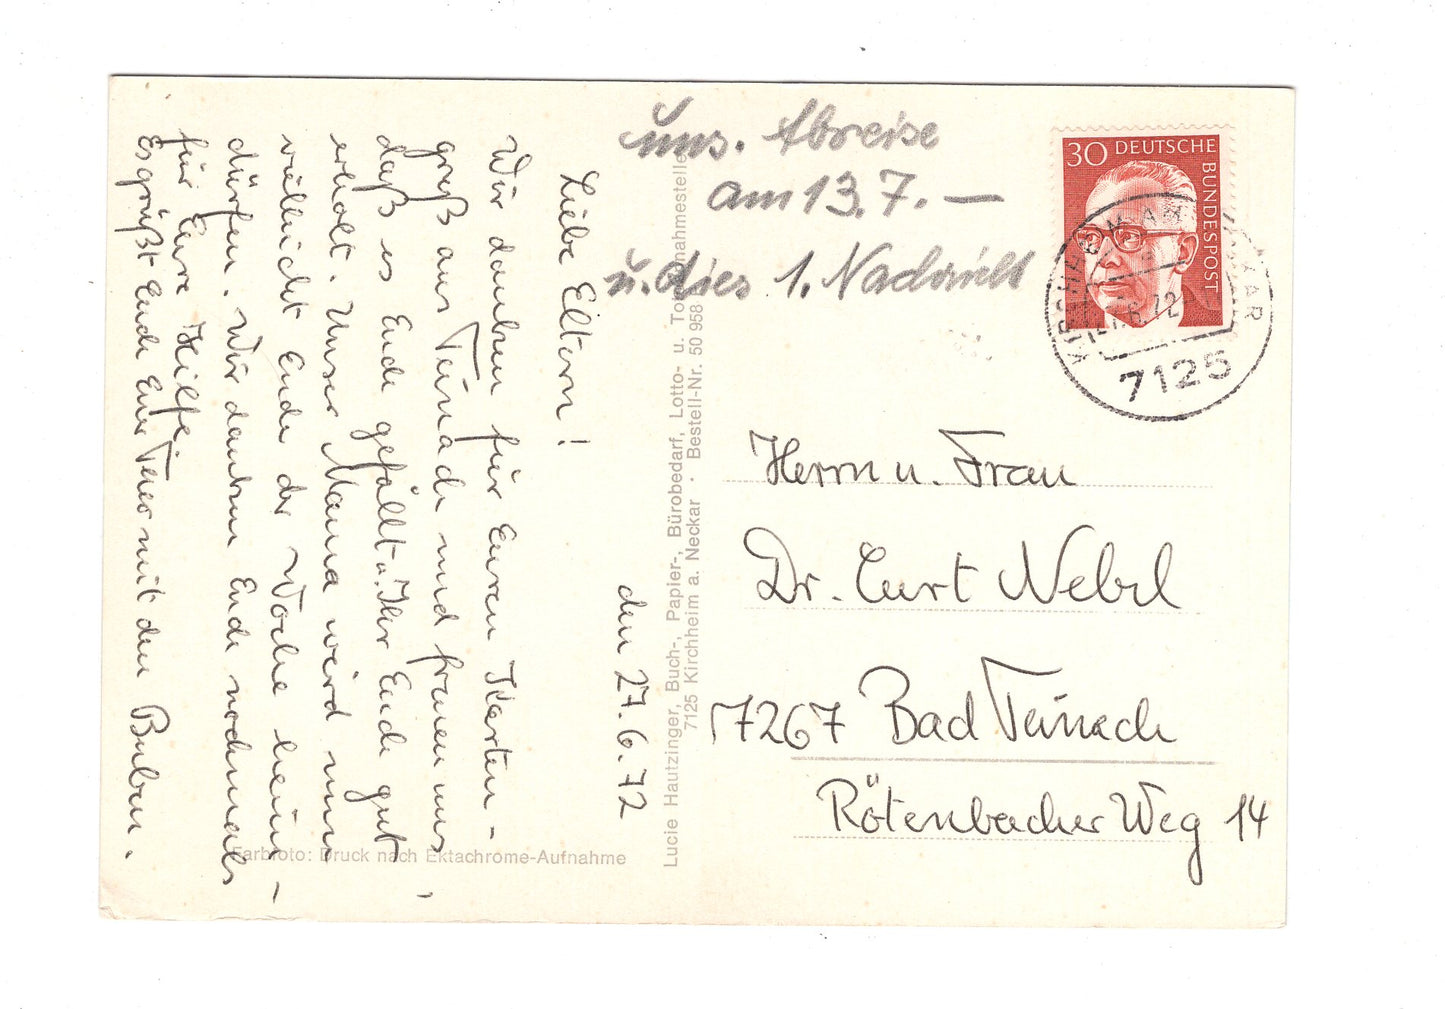 uns. Abreise
am 13.7. —
u. dies 1. Nachricht
30 DEUTSCHE
BUNDESPOST
KIRCHHEIM AM NECKAR
27.6.72
7125
Liebe Eltern!
Wir danken für Euren Karten-
gruß aus Teinach und freuen uns,
daß es Euch gefällt u. Ihr Euch gut
erholt. Unser Mama wird nun
vielleicht Ende der Woche heim-
dürfen. Wir danken Euch nochmals
für Eure Hilfe.
Es grüßt Euch Euer mit den Buben.
den 27.6.72
Lucie Hautzinger, Buch-, Papier-, Bürobedarf, Lotto- u. Totoannahmestelle
7125 Kirchheim a. Neckar · Bestell-Nr. 50 958
Farbfoto: Druck nach Ektachrome-Aufnahme
Herrn u. Frau
Dr. Curt Nebel
7267 Bad Teinach
Rötenbacher Weg 14